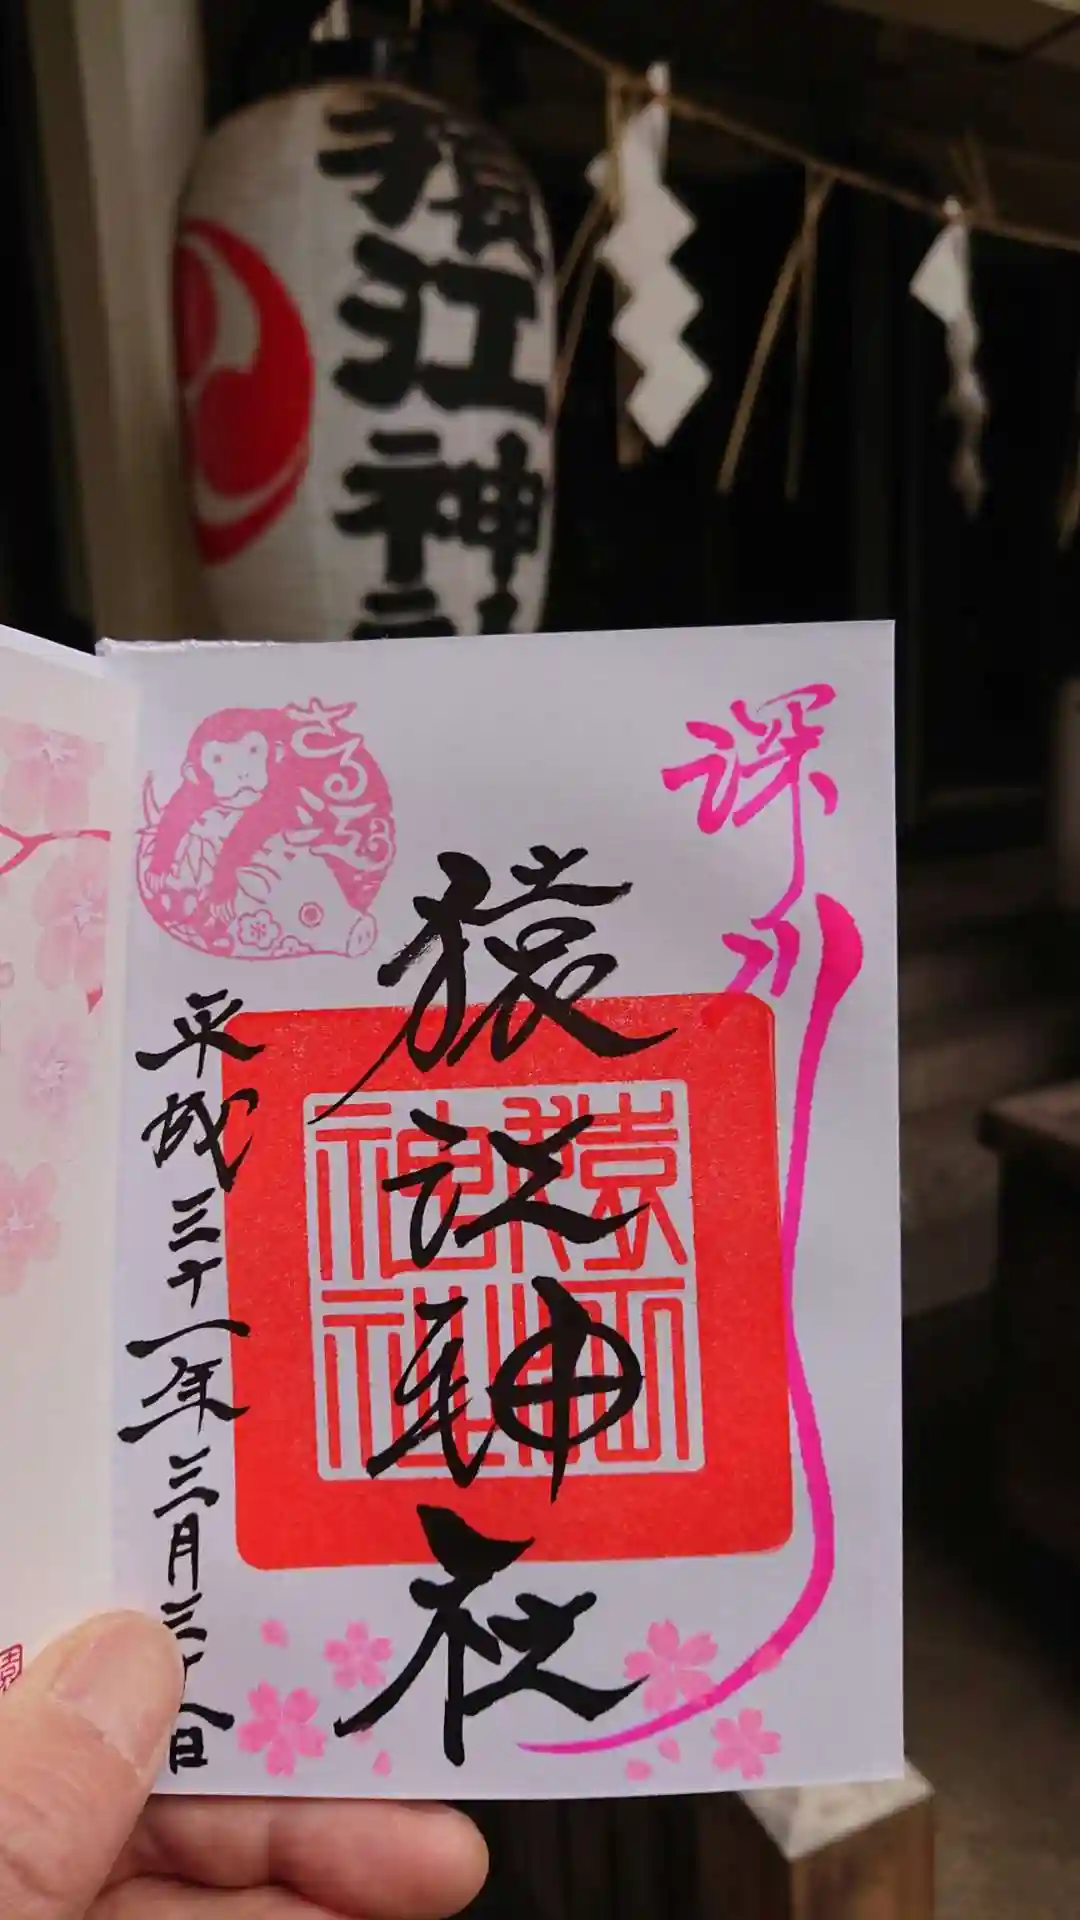 猿江神社
さるえ
深川
猿江神社
猿江神社
平成三十一年三月三十八日